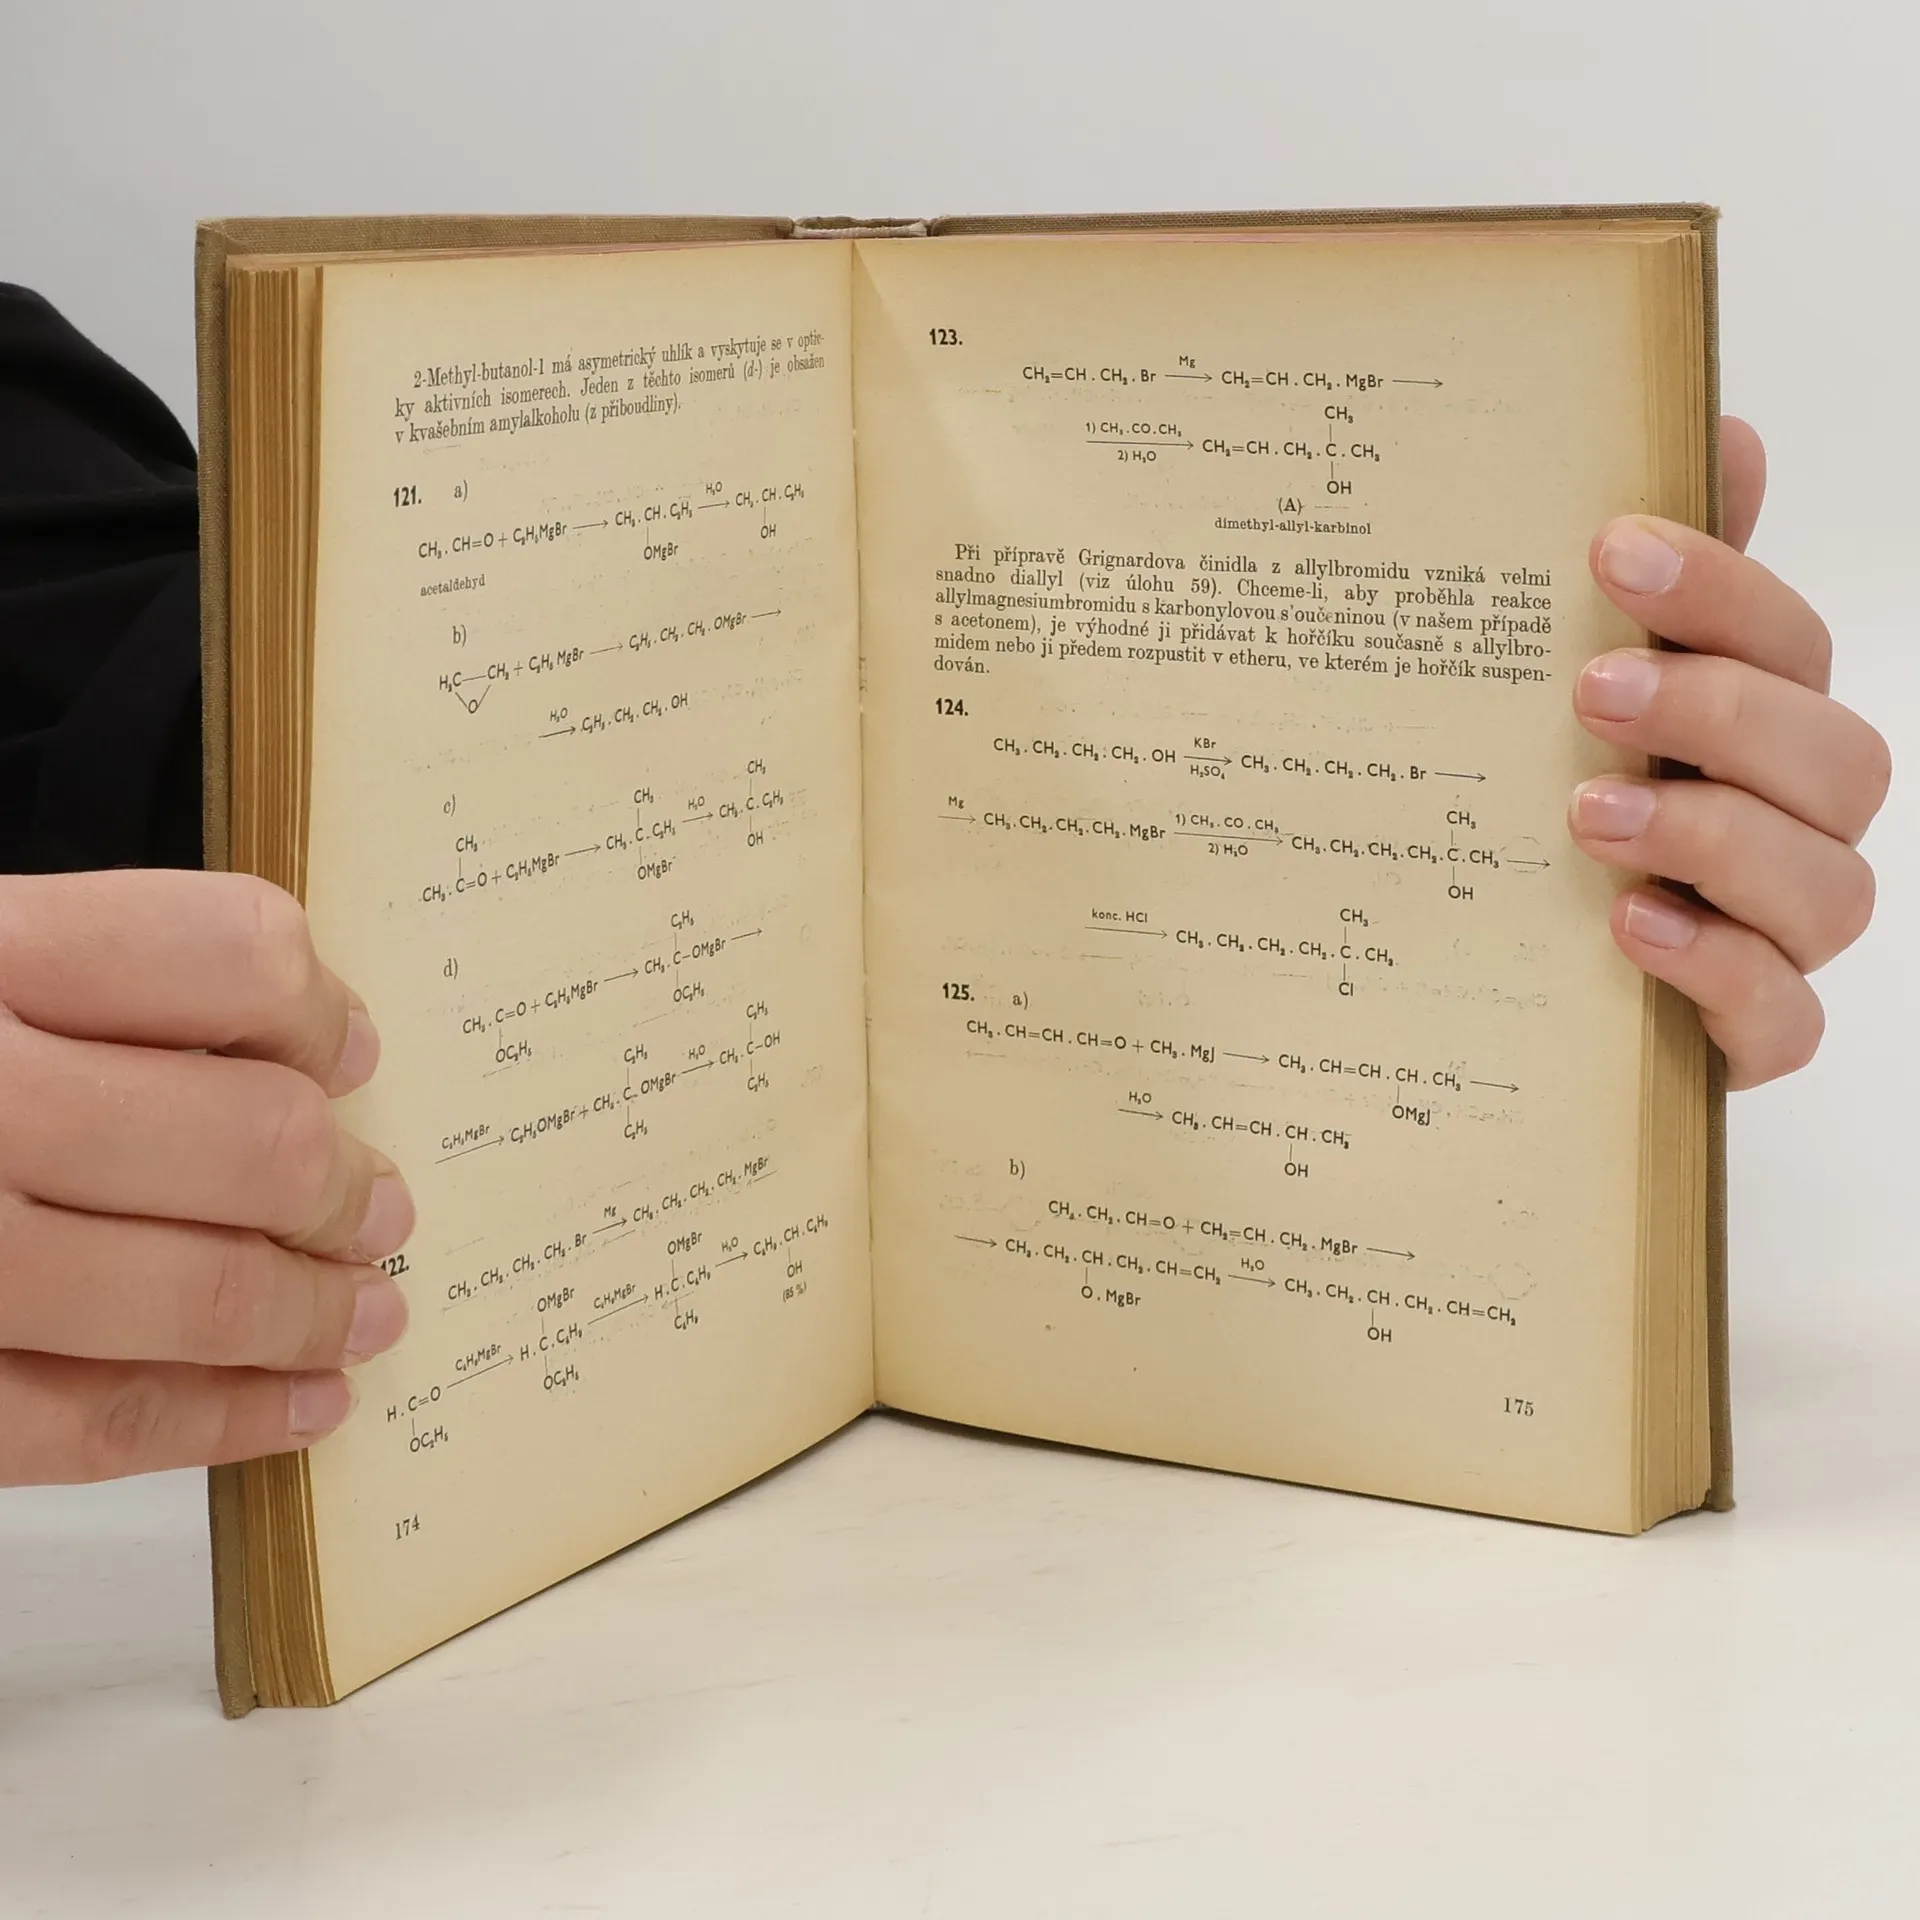 2-Methyl-butanol-1 má asymetrický uhlík a vyskytuje se v optic-
ky aktivních isomerech. Jeden z těchto isomerů (d-) je obsažen
v kvašebním amylalkoholu (z přiboudliny).
121. a)
CH₃ . CH=O + C₂H₅MgBr ⟶ CH₃ . CH . C₂H₅ ⟶ CH₃ . CH . C₂H₅
H₂O
OMgBr OH
acetaldehyd
b)
H₂C—CH₂ + C₂H₅MgBr ⟶ C₂H₅ . CH₂ . CH₂ . OMgBr ⟶
O
H₂O
⟶ C₂H₅ . CH₂ . CH₂ . OH
c)
CH₃ CH₃ CH₃
CH₃ . C=O + C₂H₅MgBr ⟶ CH₃ . C . C₂H₅ ⟶ CH₃ . C . C₂H₅
H₂O
OMgBr OH
d)
C₂H₅
CH₃ . C=O + C₂H₅MgBr ⟶ CH₃ . C—OMgBr ⟶
OC₂H₅ OC₂H₅
C₂H₅ C₂H₅
C₂H₅MgBr ⟶ C₂H₅OMgBr + CH₃ . C . OMgBr ⟶ CH₃ . C—OH
H₂O
C₂H₅ C₂H₅
122.
Mg
CH₃ . CH₂ . CH₂ . CH₂ . Br ⟶ CH₃ . CH₂ . CH₂ . CH₂ . MgBr
OMgBr OMgBr
C₄H₉MgBr C₄H₉MgBr H₂O
H . C=O ⟶ H . C . C₄H₉ ⟶ H . C . C₄H₉ ⟶ C₄H₉ . CH . C₄H₉
OC₂H₅ OC₂H₅ C₄H₉ OH
(85 %)
174
123.
Mg
CH₂=CH . CH₂ . Br ⟶ CH₂=CH . CH₂ . MgBr ⟶
CH₃
1) CH₃ . CO . CH₃
⟶ CH₂=CH . CH₂ . C . CH₃
2) H₂O
OH
(A)
dimethyl-allyl-karbinol
Při přípravě Grignardova činidla z allylbromidu vzniká velmi
snadno diallyl (viz úlohu 59). Chceme-li, aby proběhla reakce
allylmagnesiumbromidu s karbonylovou s'oučeninou (v našem případě
s acetonem), je výhodné ji přidávat k hořčíku současně s allylbro-
midem nebo ji předem rozpustit v etheru, ve kterém je hořčík suspen-
dován.
124.
KBr
CH₃ . CH₂ . CH₂ . CH₂ . OH ⟶ CH₃ . CH₂ . CH₂ . CH₂ . Br ⟶
H₂SO₄
CH₃
Mg 1) CH₃ . CO . CH₃
⟶ CH₃ . CH₂ . CH₂ . CH₂ . MgBr ⟶ CH₃ . CH₂ . CH₂ . CH₂ . C . CH₃ ⟶
2) H₂O
OH
konc. HCl CH₃
⟶ CH₃ . CH₂ . CH₂ . CH₂ . C . CH₃
Cl
125. a)
CH₃ . CH=CH . CH=O + CH₃ . MgJ ⟶ CH₃ . CH=CH . CH . CH₃ ⟶
OMgJ
H₂O
⟶ CH₃ . CH=CH . CH . CH₃
OH
b)
CH₃ . CH₂ . CH=O + CH₂=CH . CH₂ . MgBr ⟶
H₂O
⟶ CH₃ . CH₂ . CH . CH₂ . CH=CH₂ ⟶ CH₃ . CH₂ . CH . CH₂ . CH=CH₂
O . MgBr OH
175